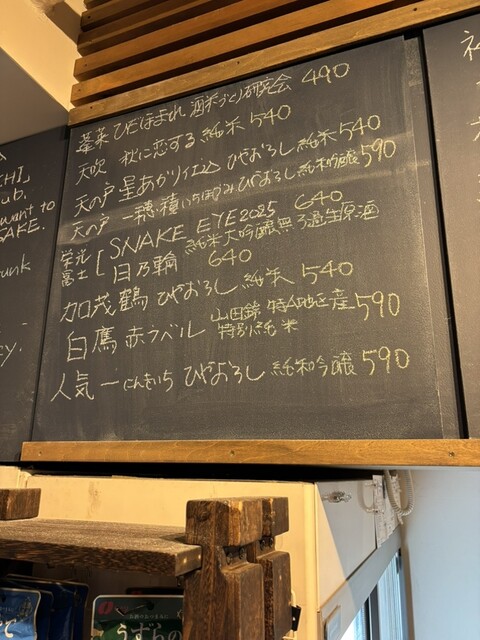 蓬莱 ひだほまれ 酒米づくり研究会 490
天吹 秋に恋する 純米 540
天の戸 星あかり仕込 ひやおろし 純米 540
天の戸 一穂積 いちほづみ ひやおろし 純米吟醸 590
栄光冨士 [ SNAKE EYE 2025 640
純米大吟醸無ろ過生原酒
日乃輪 640
加茂鶴 ひやおろし 純米 540
白鷹 赤ラベル 山田錦 特A地区産 590
特別純米
人気一 にんきいち ひやおろし 純米吟醸 590
CHI,
ub.
want to
SAKE.
unk
cy.
うずらの